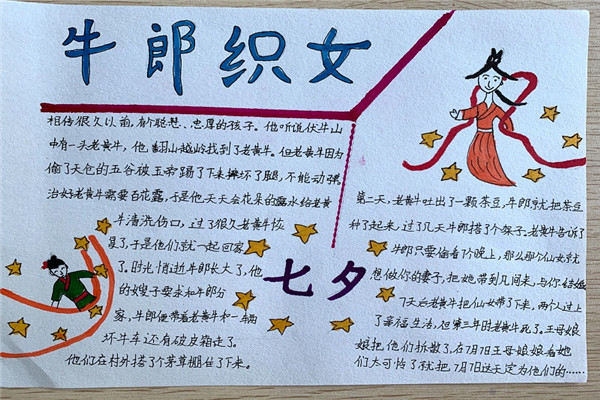 牛郎织女
相传很久以前，有个聪慧、忠厚的孩子。他听说伏牛山
中有一头老黄牛，他翻山越岭找到了老黄牛。但老黄牛因为
偷了天仓的五谷被玉帝踢了下来摔坏了腿，不能动弹
治好老黄牛需要百花露，于是他天天会花朵的露水给老黄
牛清洗伤口，过了很久老黄牛恢
复了，于是他们就一起回家
了。时光悄逝牛郎长大了，他
的嫂子要求和牛郎分
家，牛郎便带着老黄牛和一辆
坏牛车还有破皮箱走了。
他们在村外搭了个茅草棚住了下来。
七夕
第二天，老黄牛吐出了一颗茶豆，牛郎就把茶豆
种了起来，过了几天牛郎搭了个架子。老黄牛告诉了
牛郎只要偷看7个晚上，那么那个仙女就
想做你的妻子，把她带到凡间来，与你结婚
7天后老黄牛把仙女带了下来，两个人过上
了幸福生活，但第三年时老黄牛死了。王母娘
娘把他们拆散了，在7月7日王母娘娘看她
们太可怜了就把7月7日这天定为他们的……